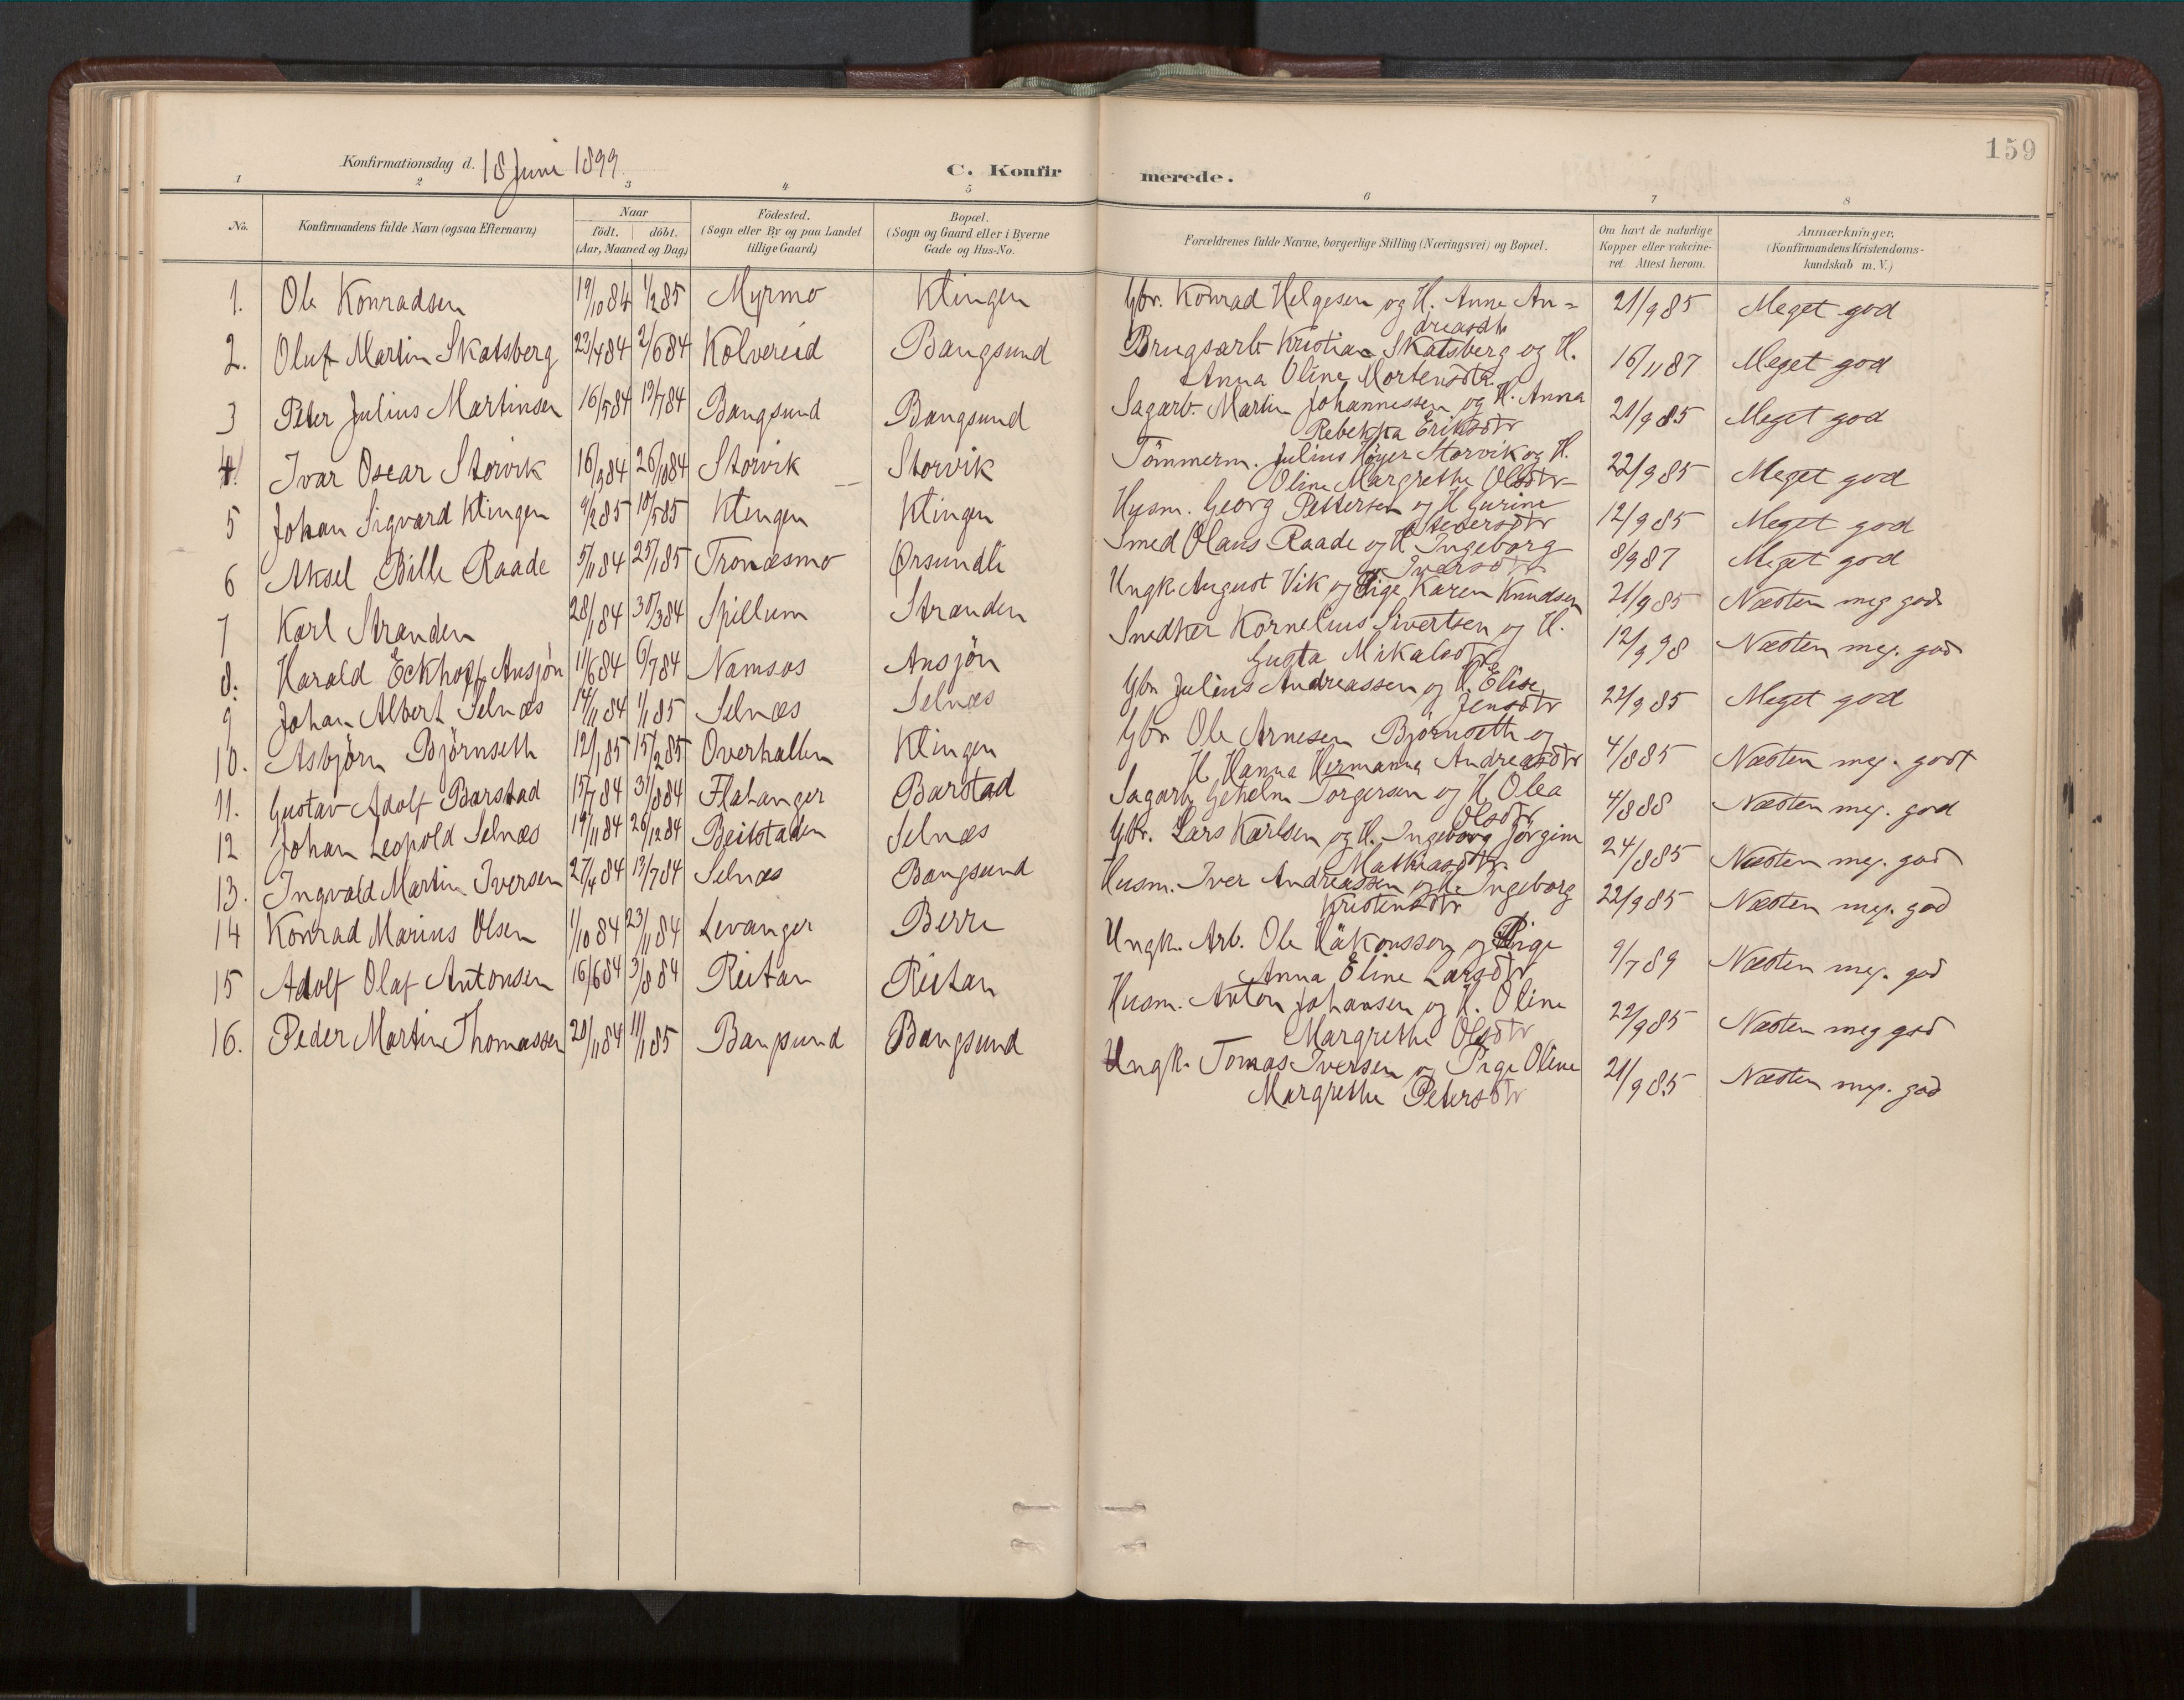 159
Konfirmationsdag d. 18 Juni 1899
C. Konfirmerede.
1 2 3 4 5 6 7 8
No. Konfirmandens fulde Navn (ogsaa Efternavn) Naar födt. döbt. (Aar, Maaned og Dag.) Födested. (Sogn eller By og paa Landet tillige Gaard) Bopæl. (Sogn og Gaard eller i Byerne Gade og Hus-No. Forældrenes fulde Navne, borgerlige Stilling (Næringsvei) og Bopæl. Om havt de naturlige Kopper eller vakcineret. Attest herom. Anmærkninger. (Konfirmandens Kristendomskundskab m. V.)
1. Ole Konradsen 19/10 84 1/2 85 Myrmo Klingen Gbr. Konrad Helgesen og H. Anne An=
dreasdtr 21/9 85 Meget god
2. Oluf Martin Skatsberg 23/4 84 2/6 84 Kolvereid Bangsund Brugsarb Kristian Skatsberg og H.
Anna Oline Mortensdtr 16/11 87 Meget god
3 Peter Julius Martinsen 16/5 84 13/7 84 Bangsund Bangsund Sagarb. Martin Johannessen og H. Anna
Rebekka Eriksdtr 21/9 85 Meget god
4 Ivar Oscar Storvik 16/9 84 26/10 84 Storvik Storvik Tömmerm. Julius Høyer Storvik og H.
Oline Margrethe Olsdtr 22/9 85 Meget god
5 Johan Sigvard Klingen 9/2 85 10/5 85 Klingen Klingen Husm. Georg Pettersen og H Gurine
Pedersdtr 12/9 85 Meget god
6 Aksel Bille Raade 5/11 84 25/1 85 Tronæsmo Ørsundli Smed Olaus Raade og H Ingeborg
Iversdtr 8/9 87 Meget god
7 Karl Stranden 28/1 84 30/3 84 Spillum Stranden Ungk August Vik og Pige Karen Knudsen 21/9 85 Næsten meg god
8. Harald Eckhoff Ansjön 11/6 84 6/7 84 Namsos Ansjön Snedker Kornelius Sivertsen og H.
Gusta Mikalsdtr 12/9 98 Næsten meg. god
9 Johan Albert Selnæs 14/11 84 1/1 85 Selnæs Selnæs Gbr Julius Andreassen og H. Elise
Jensdtr 22/9 85 Meget god
10. Asbjörn Björnseth 12/1 85 15/2 85 Overhallen Klingen Gbr Ole Arnesen Björnseth og
H Hanna Hermanna Andreasdtr 4/8 85 Næsten meg. godt
11. Gustav Adolf Barstad 15/7 84 31/8 84 Flatanger Barstad Sagarb Torgersen og H Olea
Olsdtr 4/8 88 Næsten meg. god
12 Johan Leopold Selnæs 19/11 84 26/12 84 Beitstaden Selnæs Gbr. Lars Karlsen og H. Ingeborg Jörgine
Mathiasdtr 24/8 85 Næsten meg. god
13. Ingvald Martin Iversen 27/4 84 13/7 84 Selnæs Bangsund Husm. Iver Andreassen og H. Ingeborg
Kristensdtr 22/9 85 Næsten meg. god
14 Konrad Marius Olsen 1/10 84 23/11 84 Levanger Berre Ungk. Arb. Ole Håkonsson og Pige
Anna Eline Larsdtr 9/7 89 Næsten meg. god
15 Adolf Olaf Antonsen 16/6 84 3/8 84 Reitan Reitan Husm. Anton Johansen og H. Oline
Margrethe Olsdtr 22/9 85 Næsten meg god
16. Peder Martin Thomassen 20/11 84 11/1 85 Bangsund Bangsund Ungk. Tomas Iversen og Pige Oline
Margrethe Petersdtr 21/9 85 Næsten meg. god